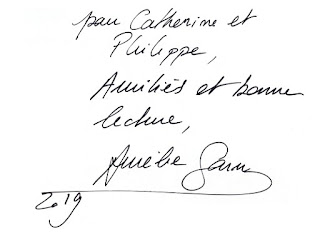 pour Catherine et
Philippe,
Amitiés et bonne
lecture,
Amélie
2019